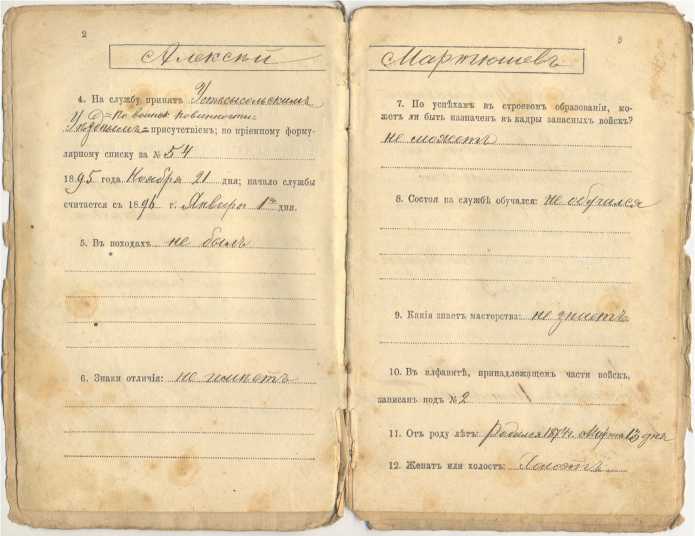 2
Алексѣй
4. На службу принятъ Устьсысольскимъ
У. О = По воинск. повинности.
Уѣзднымъ = присутствіемъ; по пріемному форму-
лярному списку за № 54
1895 года Ноября 21 дня; начало службы
считается съ 1896 г. Января 1го дня.
5. Въ походахъ не былъ
6. Знаки отличія: не имѣетъ
3
Мартюшевъ
7. По успѣхамъ въ строевомъ образованіи, мо-
жетъ ли быть назначенъ въ кадры запасныхъ войскъ?
не можетъ
8. Состоя на службѣ обучался: не обучался
9. Какія знаетъ мастерства: не знаетъ
10. Въ алфавитѣ, принадлежащемъ части войскъ,
записанъ подъ № 2
11. Отъ роду лѣтъ: родился 1874 г. Марта 13 дня
12. Женатъ или холостъ: Холостъ